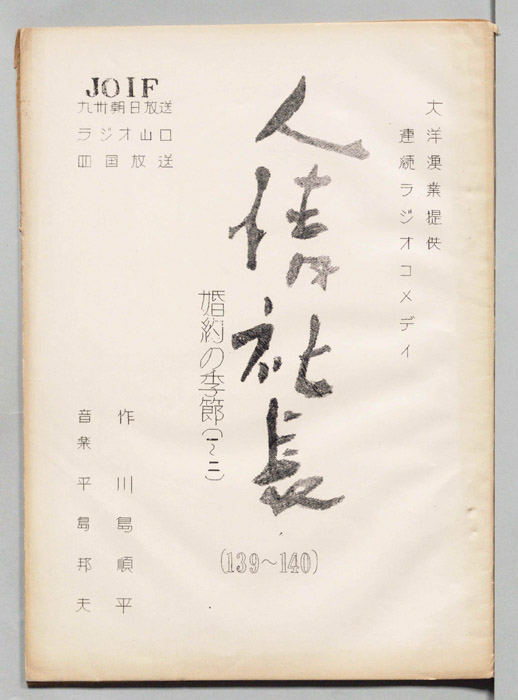 大洋漁業提供
連続ラジオコメディ
人情社長
婚約の季節(一~二)
(139~140)
JOIF
九州朝日放送
ラジオ山口
四国放送
作 川島順平
音楽 平島邦夫